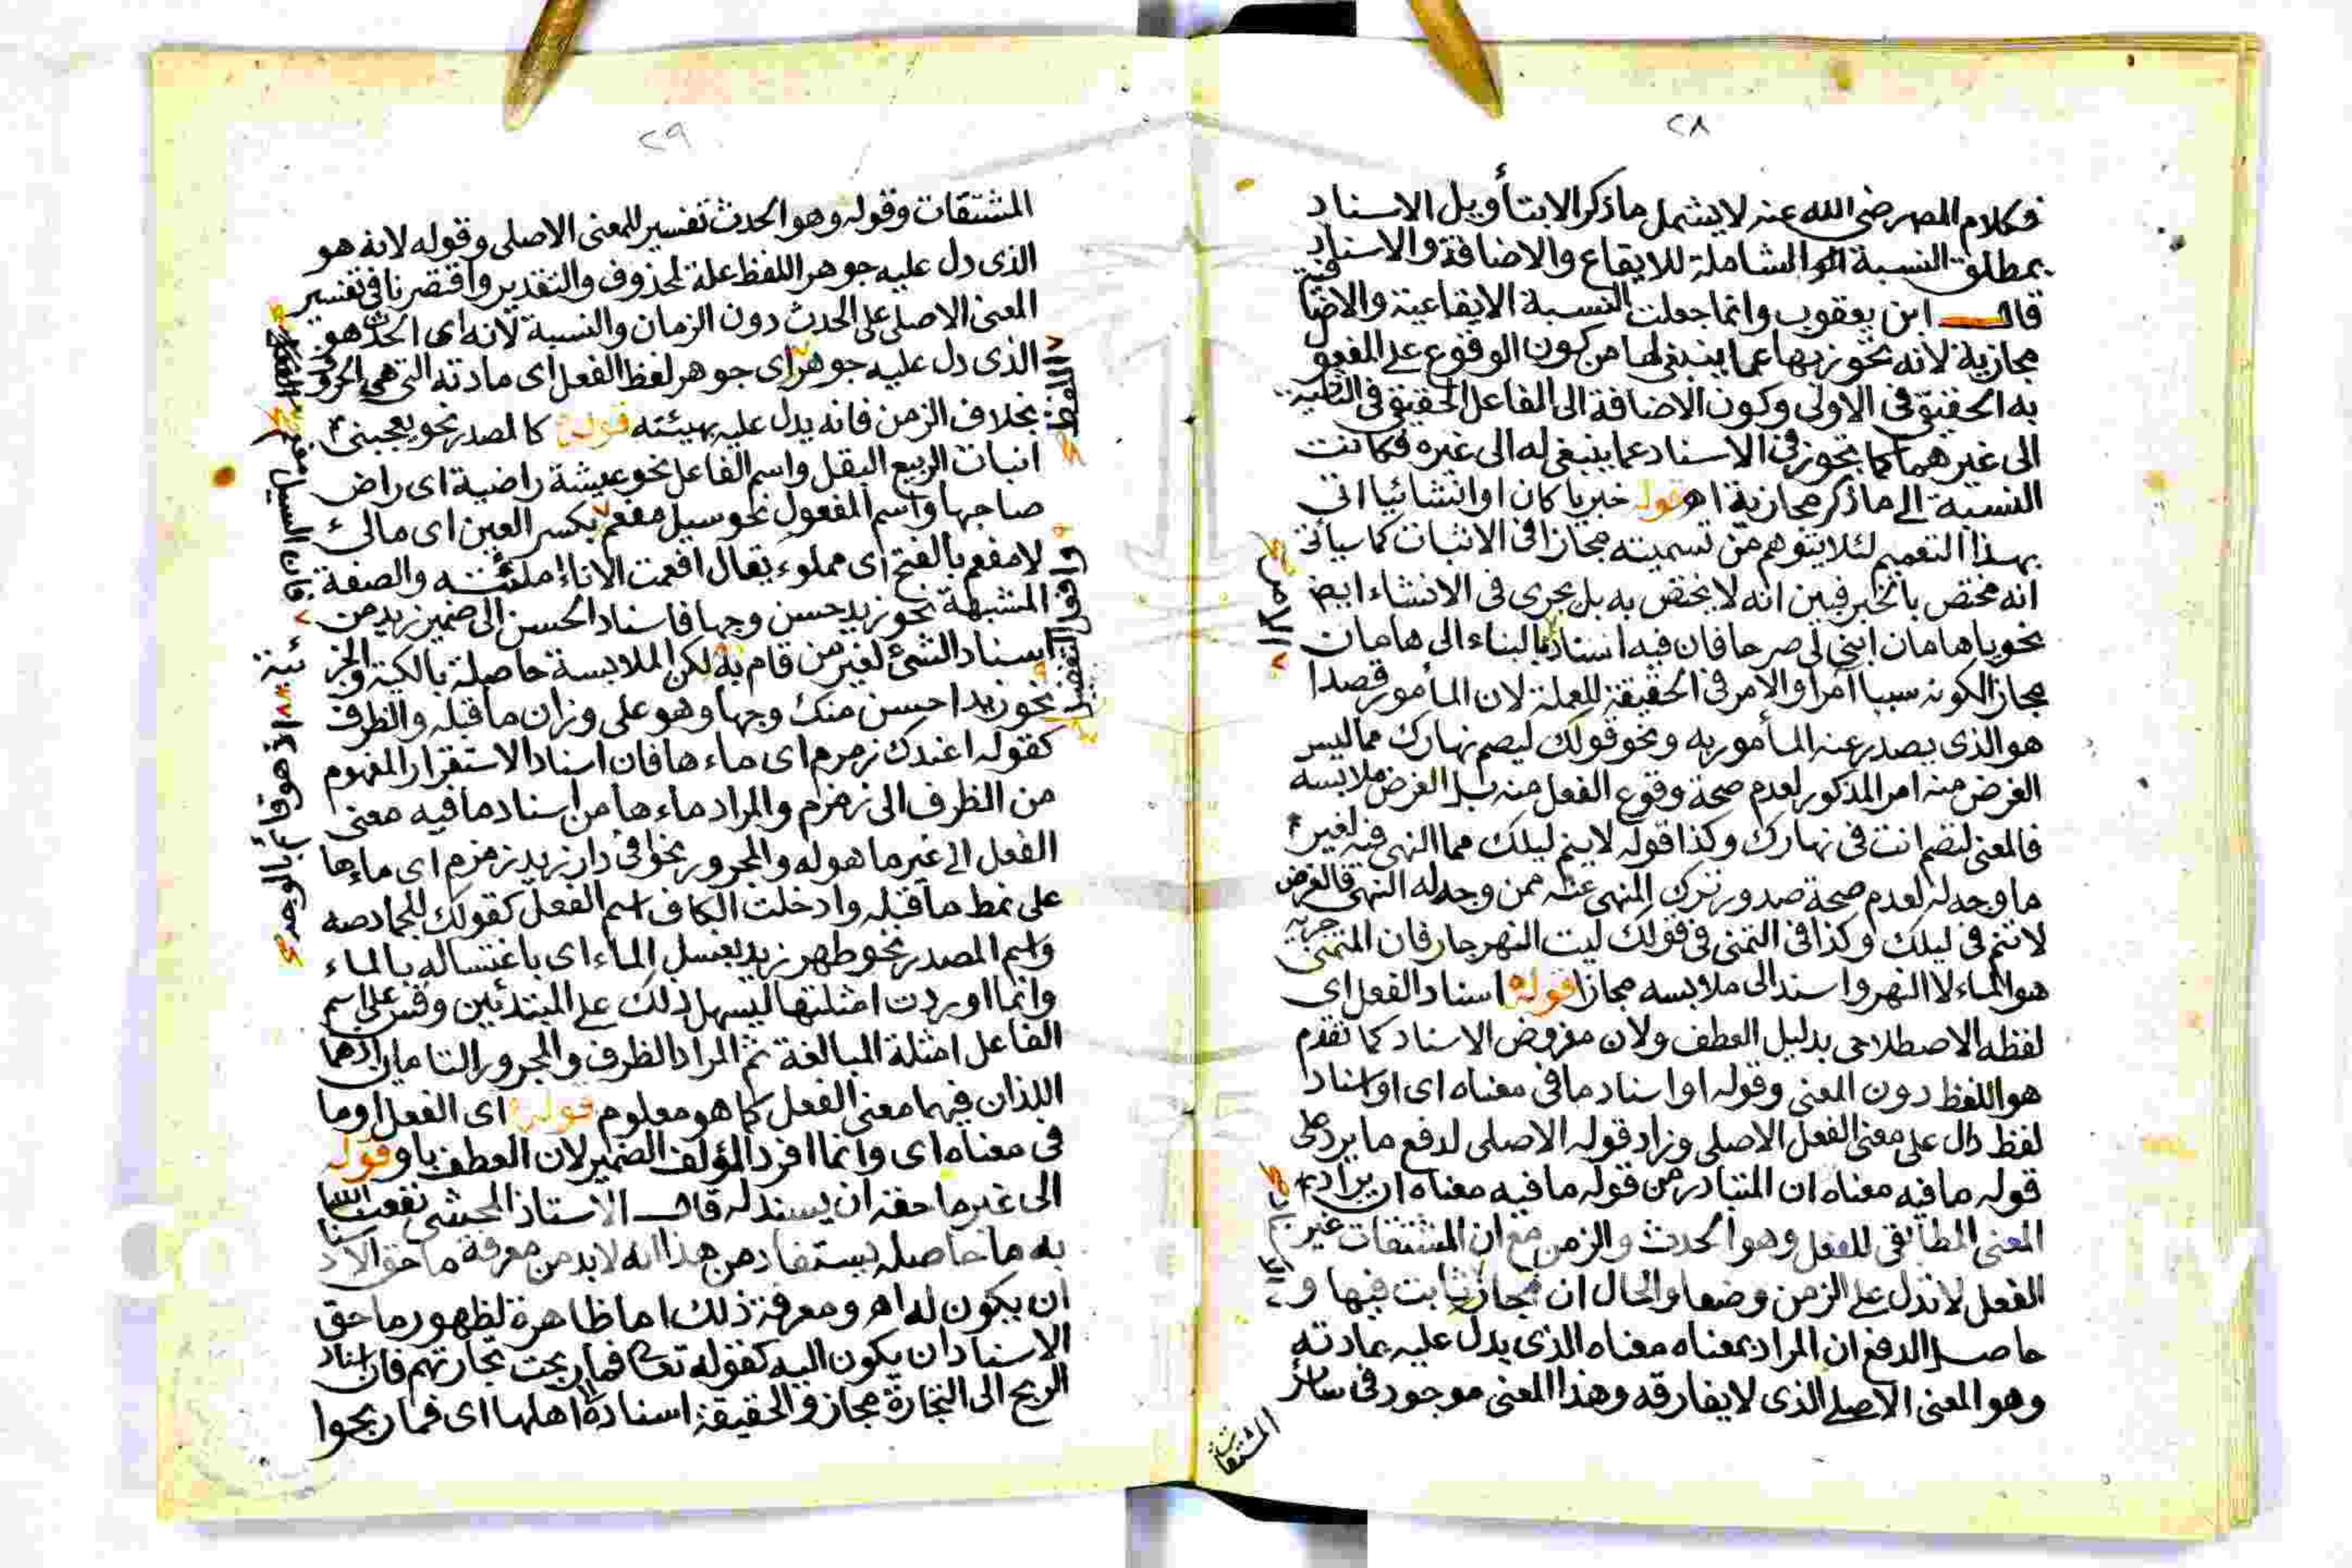 ٢٨
فكلام المصر رضى الله عنه لا يشمل ماذكر الا بتأويل الاسناد
بمطلق النسبة الشاملة للايقاع والاضافة والاسناد
قال ابن يعقوب وانما جعلت النسبة الايقاعية والاضافية
مجازية لانه تجوز بها عما ينبغى لها من كون الوقوع على المفعو
به الحقيقى فى الاولى وكون الاضافة الى الفاعل الحقيقى فى الثانية
الى غيرهما كما تجوز فى الاسناد عما ينبغى له الى غيره فكانت
النسبة الى ماذكر مجازية اهـ قوله خبريا كان او انشائيا اتى
بهذا التعميم لئلا يتوهم من تسميته مجازا فى الاثبات كما سيأتى
انه مختص بالخبر فبين انه لا يختص به بل يجرى فى الانشاء ايضا
نحو يا هامان ابنى لى صرحا فان فيه اسناد البناء الى هامان
مجاز الكونه سببا آمرا والامر فى الحقيقة للعملة لان المأمور قصدا
هو الذى يصدر عنه المأمور به ونحو قولك ليصم نهارك مما ليس
الغرض منه امر المذكور لعدم صحة وقوع الفعل منه بل الغرض ملابسه
فالمعنى لتصم انت فى نهارك وكذا قوله لا ينم ليلك مما النهى فيه لغير
ما وجه له لعدم صحة صدور ترك المنهى عنه ممن وجه له النهى فالغرض
لا تنم فى ليلك وكذا فى التمنى فى قولك ليت النهر جار فان المتمنى جريه
هو الماء لا النهر واسند الى ملابسه مجازا قوله اسناد الفعل اى
لفظه الاصطلاحى بدليل العطف ولان مفروض الاسناد كما تقدم
هو اللفظ دون المعنى وقوله او اسناد ما فى معناه اى او اسناد
لفظ دال على معنى الفعل الاصلى وزاد قوله الاصلى لدفع ما يرد على
قوله ما فيه معناه ان المتبادر من قوله ما فيه معناه ان يراد به
المعنى المطابقى للفعل وهو الحدث والزمن مع ان المشتقات غير
الفعل لا تدل على الزمن وضعا والحال ان المجاز ثابت فيها و
حاصل الدفع ان المراد بمعناه معناه الذى يدل عليه بمادته
وهو المعنى الاصلى الذى لا يفارقه وهذا المعنى موجود فى سائر
المشتقات
٢٩
المشتقات وقوله وهو الحدث تفسير للمعنى الاصلى وقوله لانه هو
الذى دل عليه جوهر اللفظ علة لمحذوف والتقدير واقتصرنا فى تفسير
المعنى الاصلى على الحدث دون الزمان والنسبة لانه اى الحدث هو
الذى دل عليه جوهر اى جوهر لفظ الفعل اى مادته التى هى الحروف
بخلاف الزمن فانه يدل عليه بهيئته قوله كالمصدر نحو يعجبنى
انبات الربيع البقل واسم الفاعل نحو عيشة راضية اى راض
صاحبها واسم المفعول نحو سيل مفعم بكسر العين اى مالئ
لا مفعم بالفتح اى مملوء يقال افعمت الاناء ملئته والصفة
المشبهة نحو زيد حسن وجها فاسناد الحسن الى ضمير زيد من
اسناد الشئ لغير من قام به لكن الملابسة حاصلة بالكية والجز
نحو زيد احسن منك وجها وهو على وزان ما قبله والظرف
كقوله اعندك زمزم اى ماءها فان اسناد الاستقرار المفهوم
من الظرف الى زمزم والمراد ماءها من اسناد ما فيه معنى
الفعل الى غير ما هو له والمجرور نحو افى دار زيد زمزم اى ماءها
على نمط ما قبله وادخلت الكاف اسم الفعل كقولك للجماد صه
واسم المصدر نحو طهر زيد بغسل الماء اى باغتساله بالماء
وانما اوردت امثلتها ليسهل ذلك على المبتدئين وقس على اسم
الفاعل امثلة المبالغة ثم المراد الظرف والمجرور التامان اذهما
اللذان فيهما معنى الفعل كما هو معلوم قوله اى الفعل او ما
فى معناه اى وانما افرد المؤلف الضمير لان العطف باو قوله
الى غير ما حقه ان يسند له قال الاستاذ المحشى نفعنا الله
به ما حاصله يستفاد من هذا انه لابد من معرفة ما حق الاسناد
ان يكون له اهـ ومعرفة ذلك اما ظاهرة لظهور ما حق
الاسناد ان يكون اليه كقوله تعالى فما ربحت تجارتهم فان اسناد
الربح الى التجارة مجاز والحقيقة اسناده لاهلها اى فما ربحوا